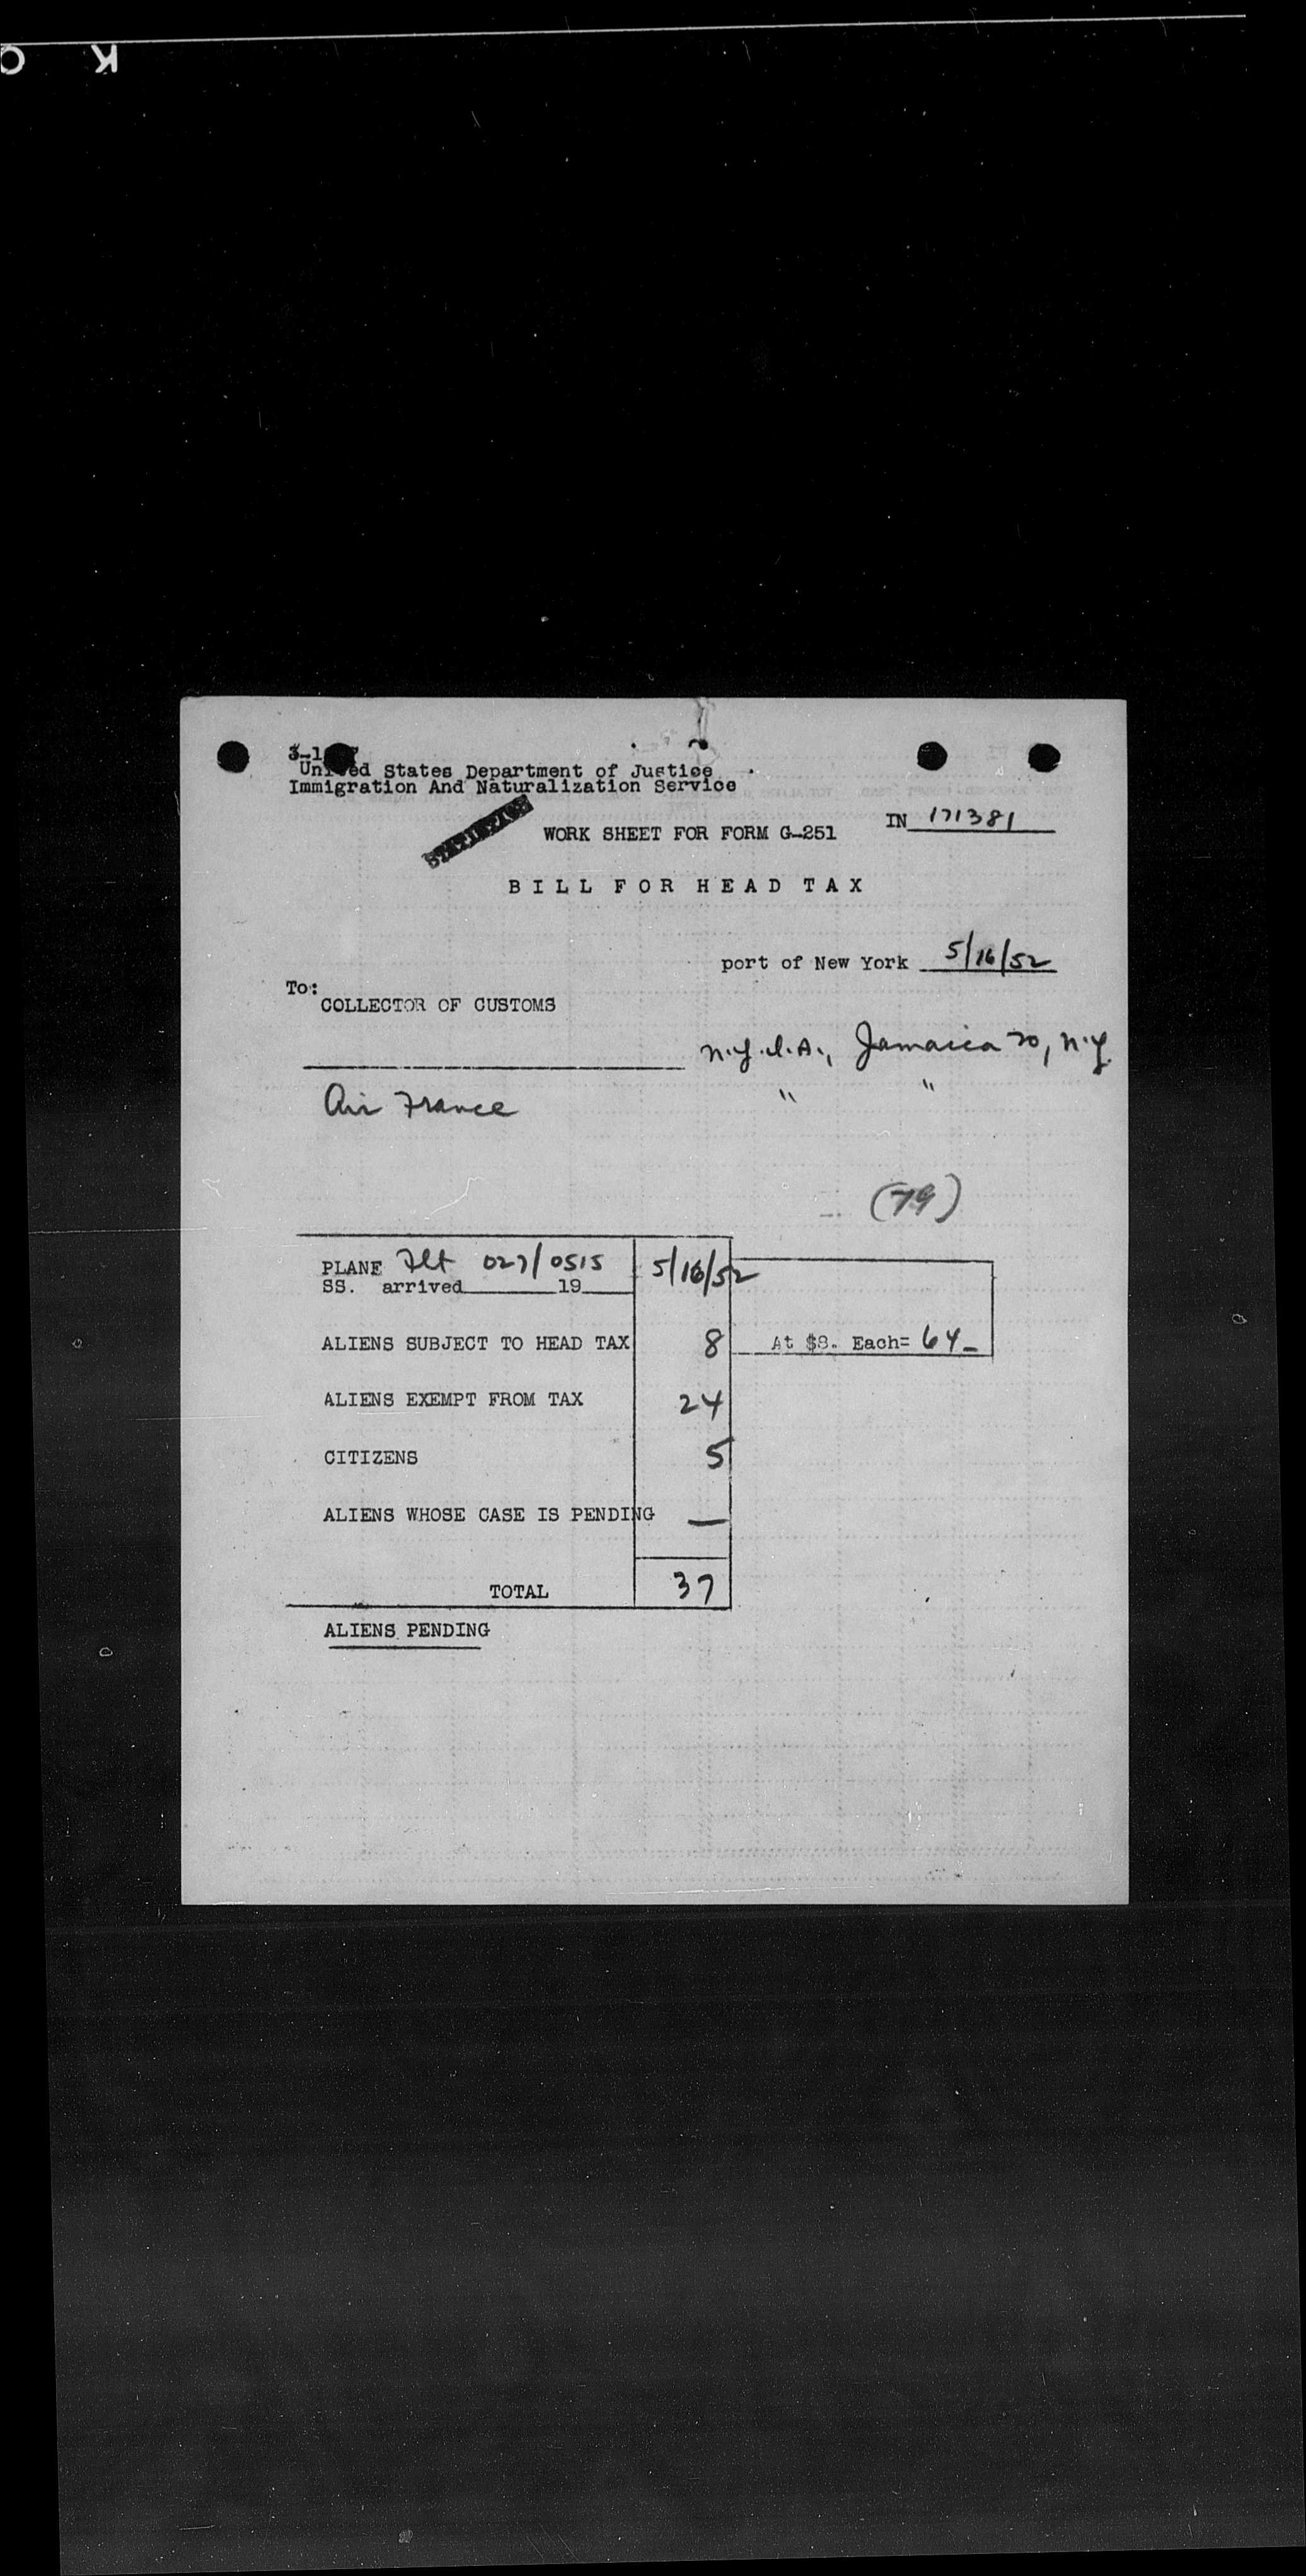 K
United States Department of Justice
Immigration And Naturalization Service
IN 171381
WORK SHEET FOR FORM G-251
BILL FOR HEAD TAX
port of New York 5/16/52
To:
COLLECTOR OF CUSTOMS
N.Y.I.A., Jamaica 20, N.Y.
Air France " "
(79)
PLANE Flt 027/0515 5/16/52
SS. arrived 19
ALIENS SUBJECT TO HEAD TAX 8 At $8. Each= 64_
ALIENS EXEMPT FROM TAX 24
CITIZENS 5
ALIENS WHOSE CASE IS PENDING —
TOTAL 37
ALIENS PENDING